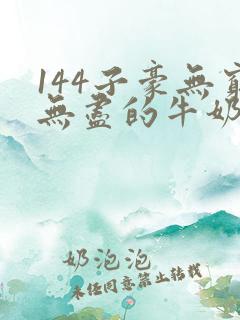 144子豪無窮
無盡的牛奶
奶泡泡
未經同意禁止轉載